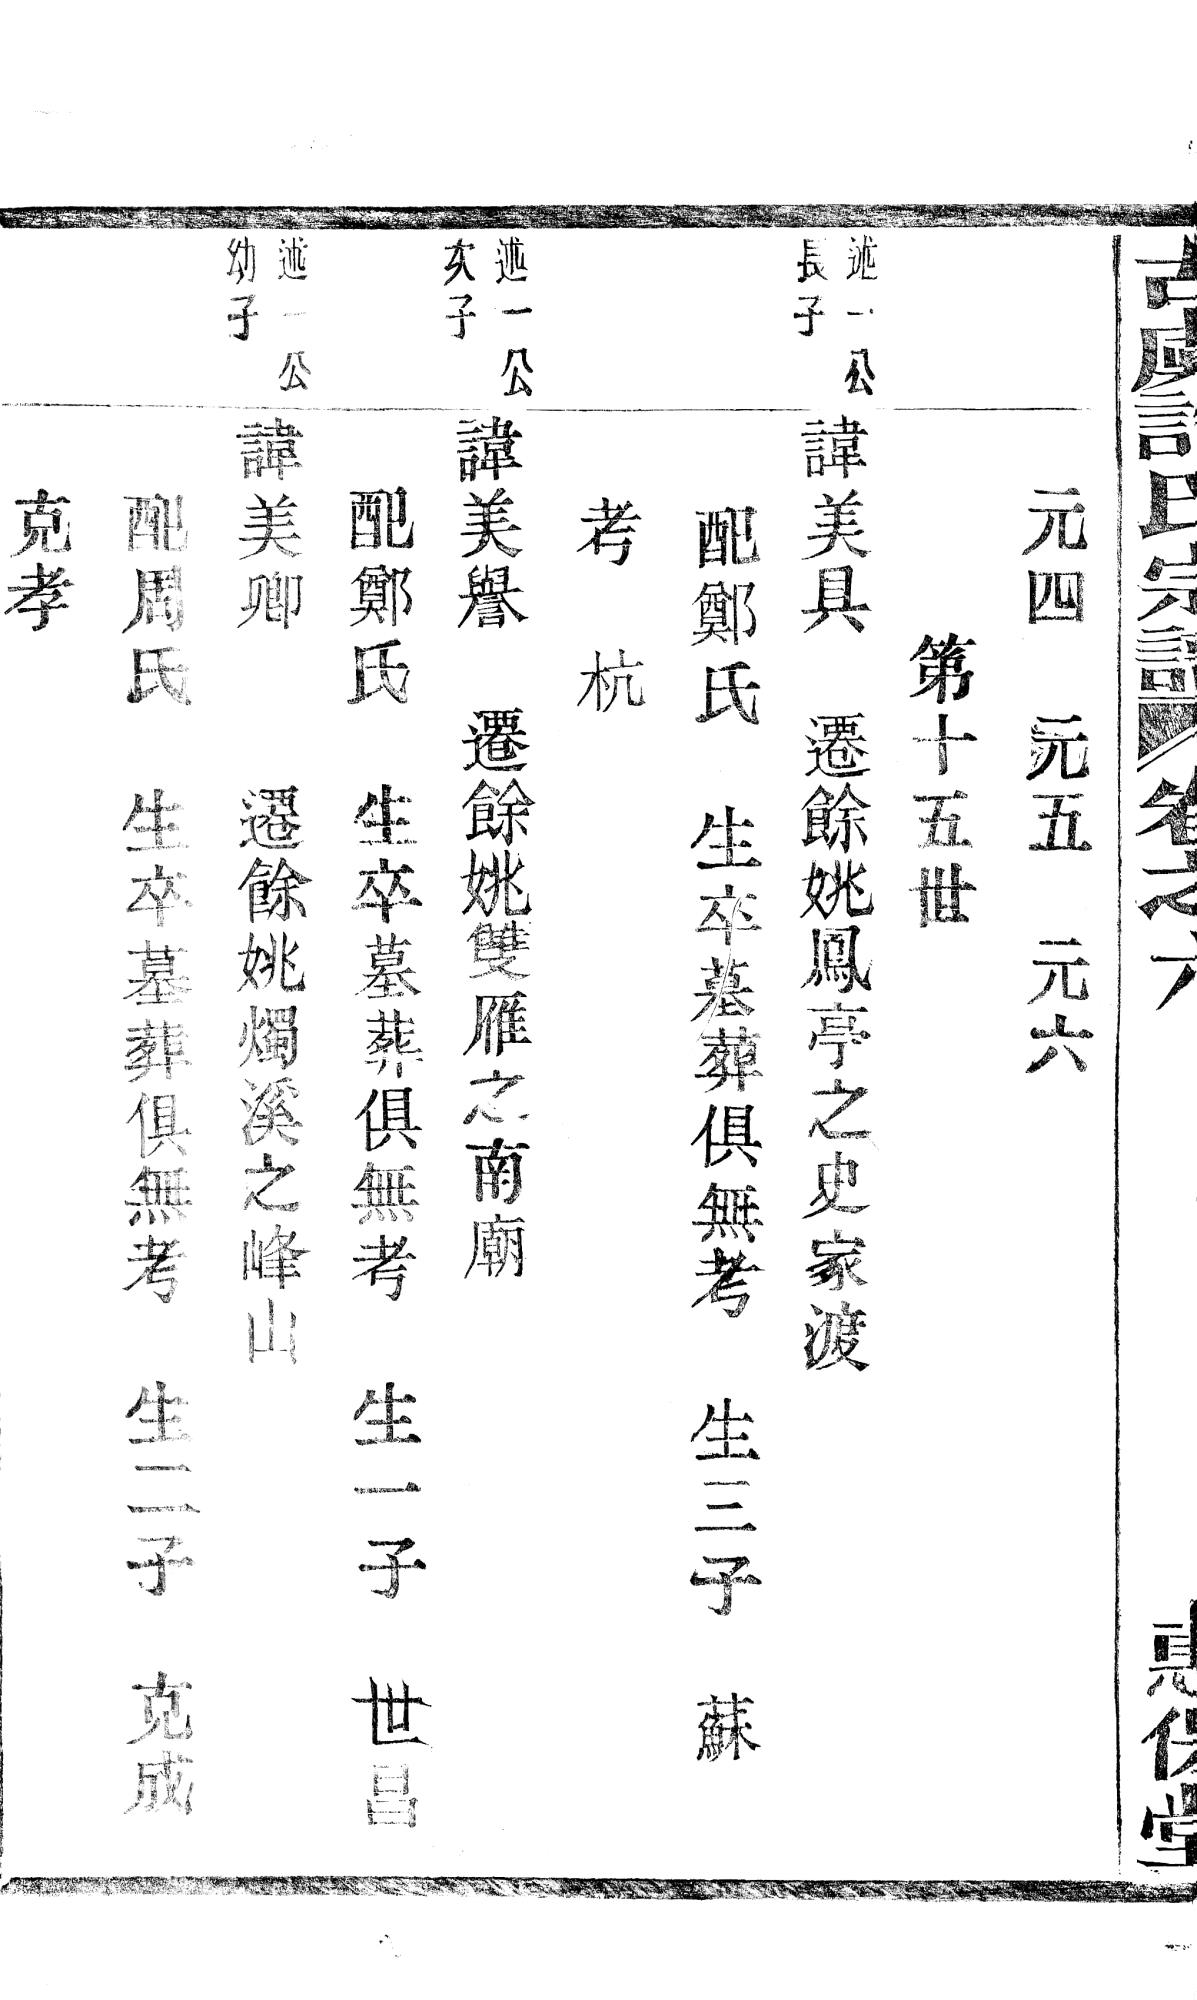 古虞許氏宗譜 卷之六 惠保堂
元四 元五 元六
第十五世
述一公
長子
諱美具 遷餘姚鳳亭之史家渡
配鄭氏 生卒墓葬俱無考 生三子 蘇
考 杭
述一公
次子
諱美譽 遷餘姚雙雁之南廟
配鄭氏 生卒墓葬俱無考 生一子 世昌
述一公
幼子
諱美卿 遷餘姚燭溪之峰山
配周氏 生卒墓葬俱無考 生二子 克成
克孝